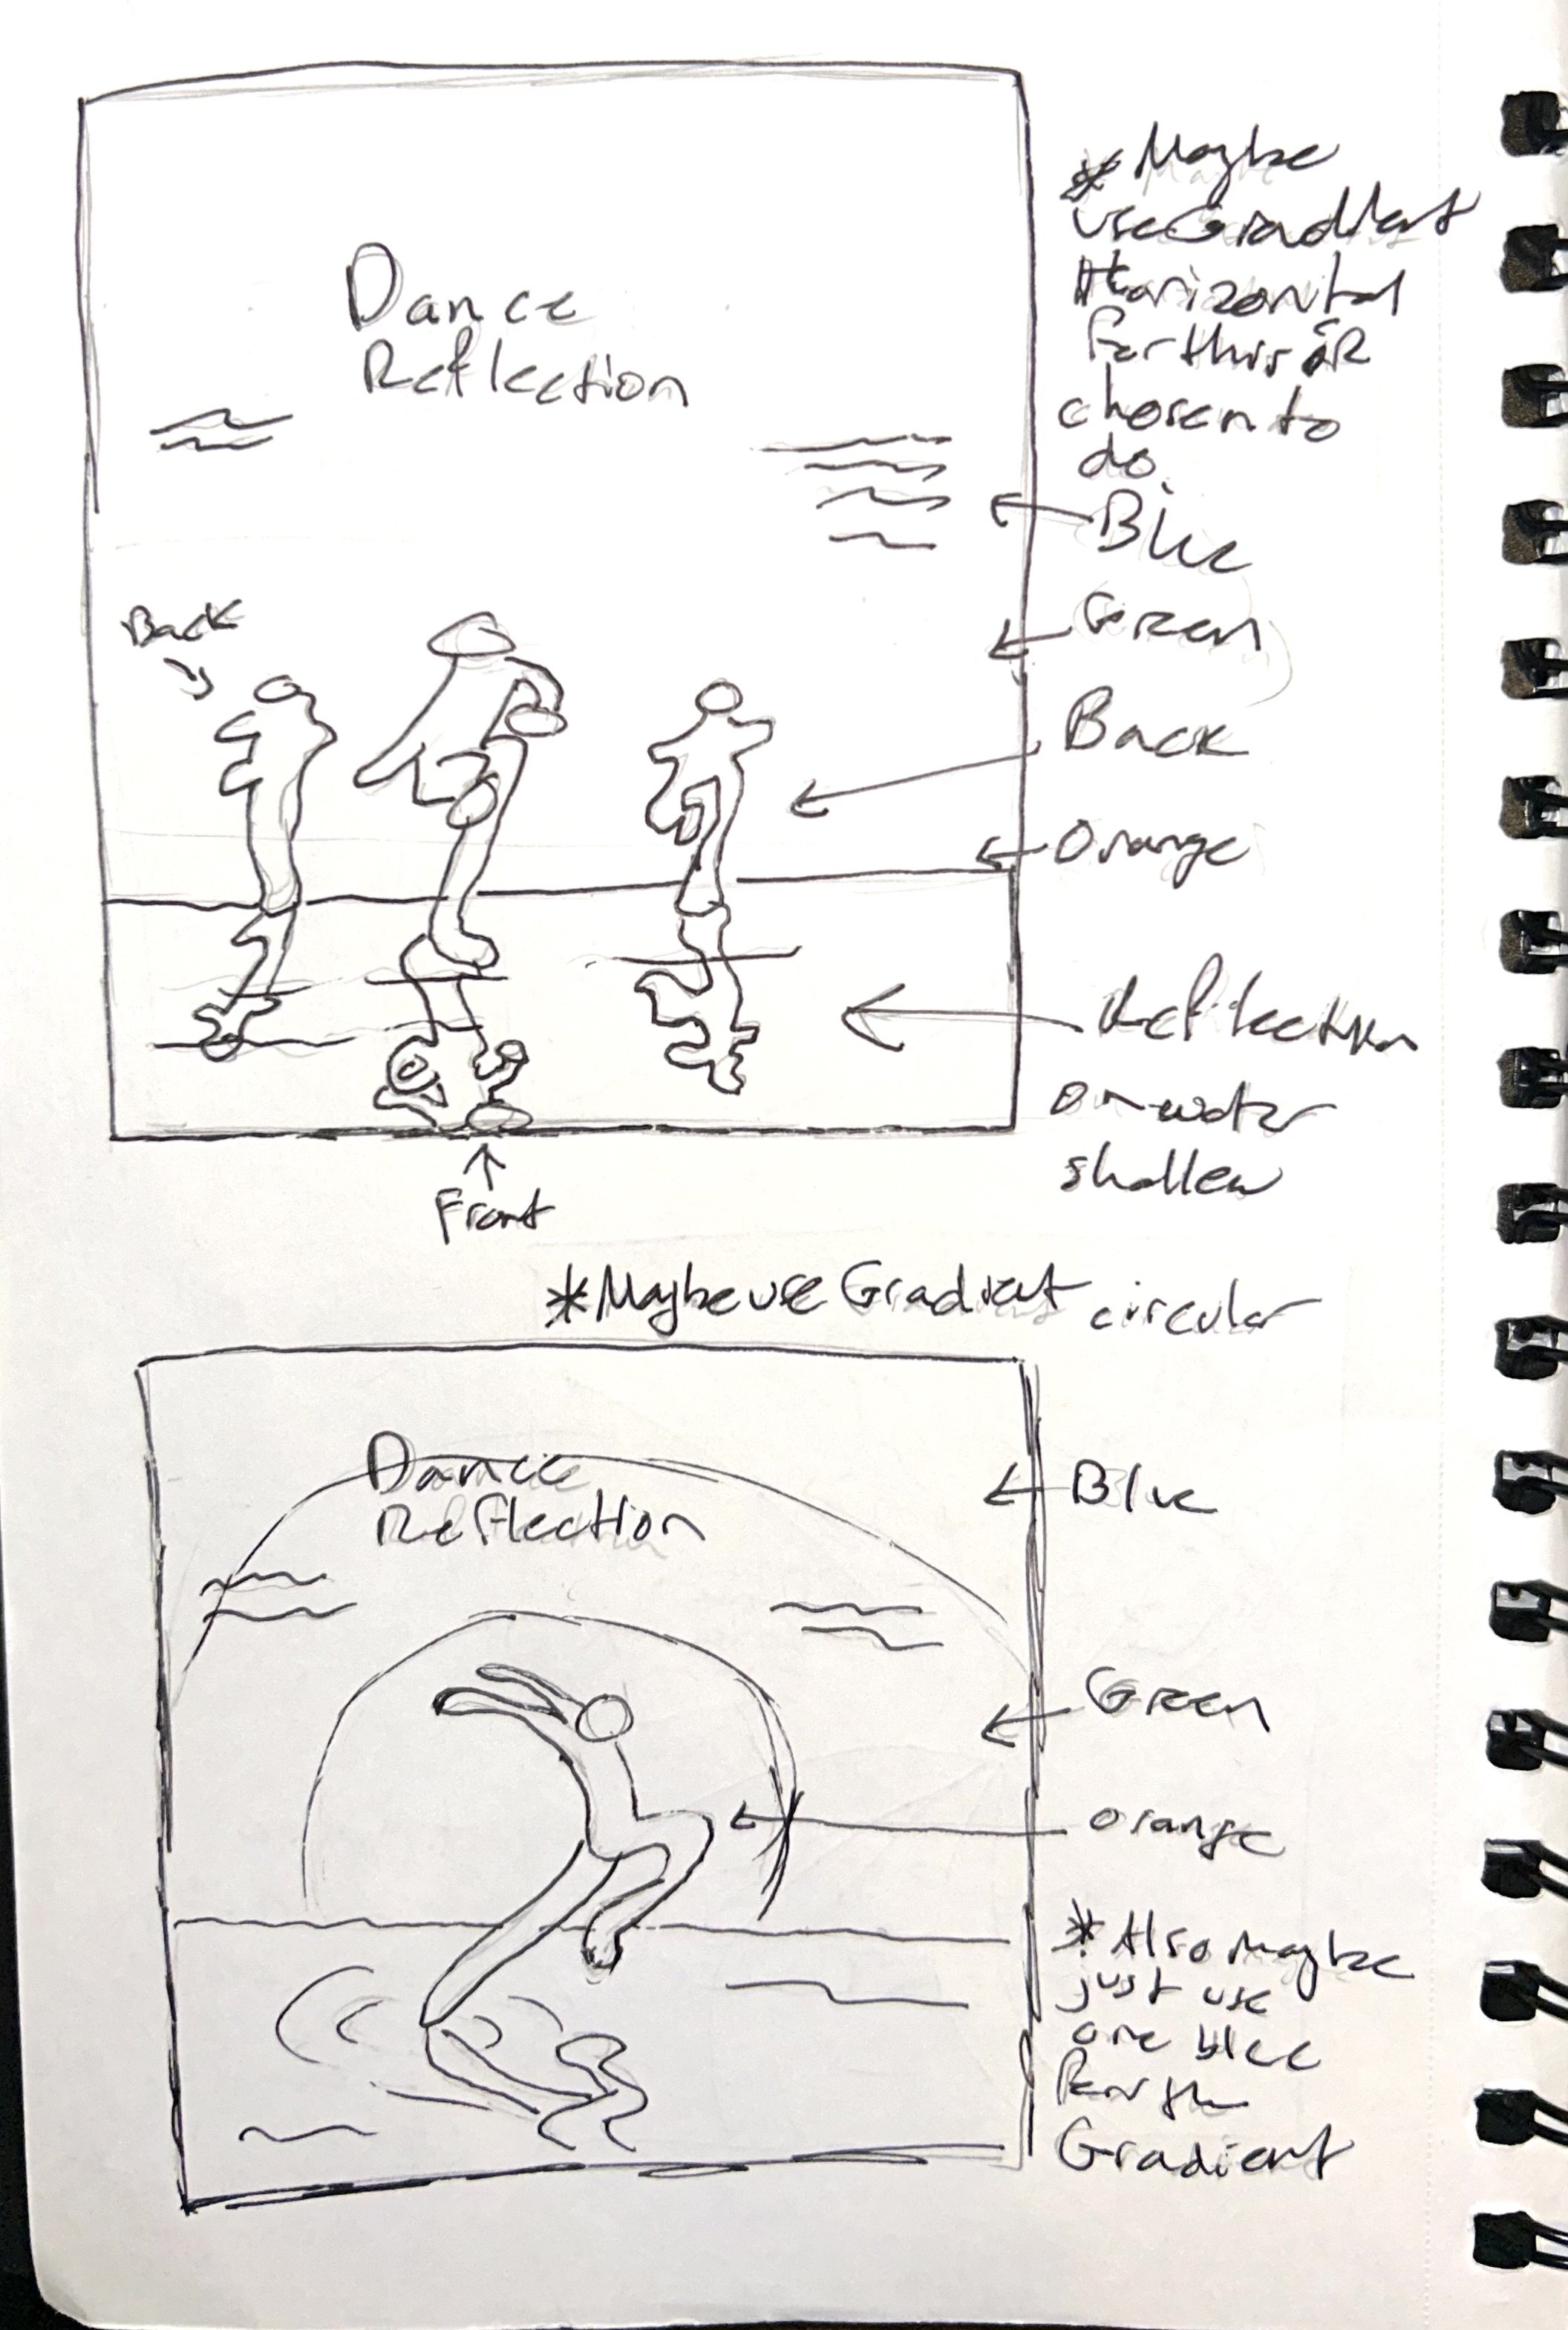 Dance
Reflection
* Maybe
use Gradient
Horizontal
for this OR
chosen to
do.
Blue
Green
Back
Back
Orange
Reflection
on water
shallow
Front
*Maybe use Gradient circular
Dance
Reflection
Blue
Green
orange
* Also maybe
just use
one blue
for the
Gradient